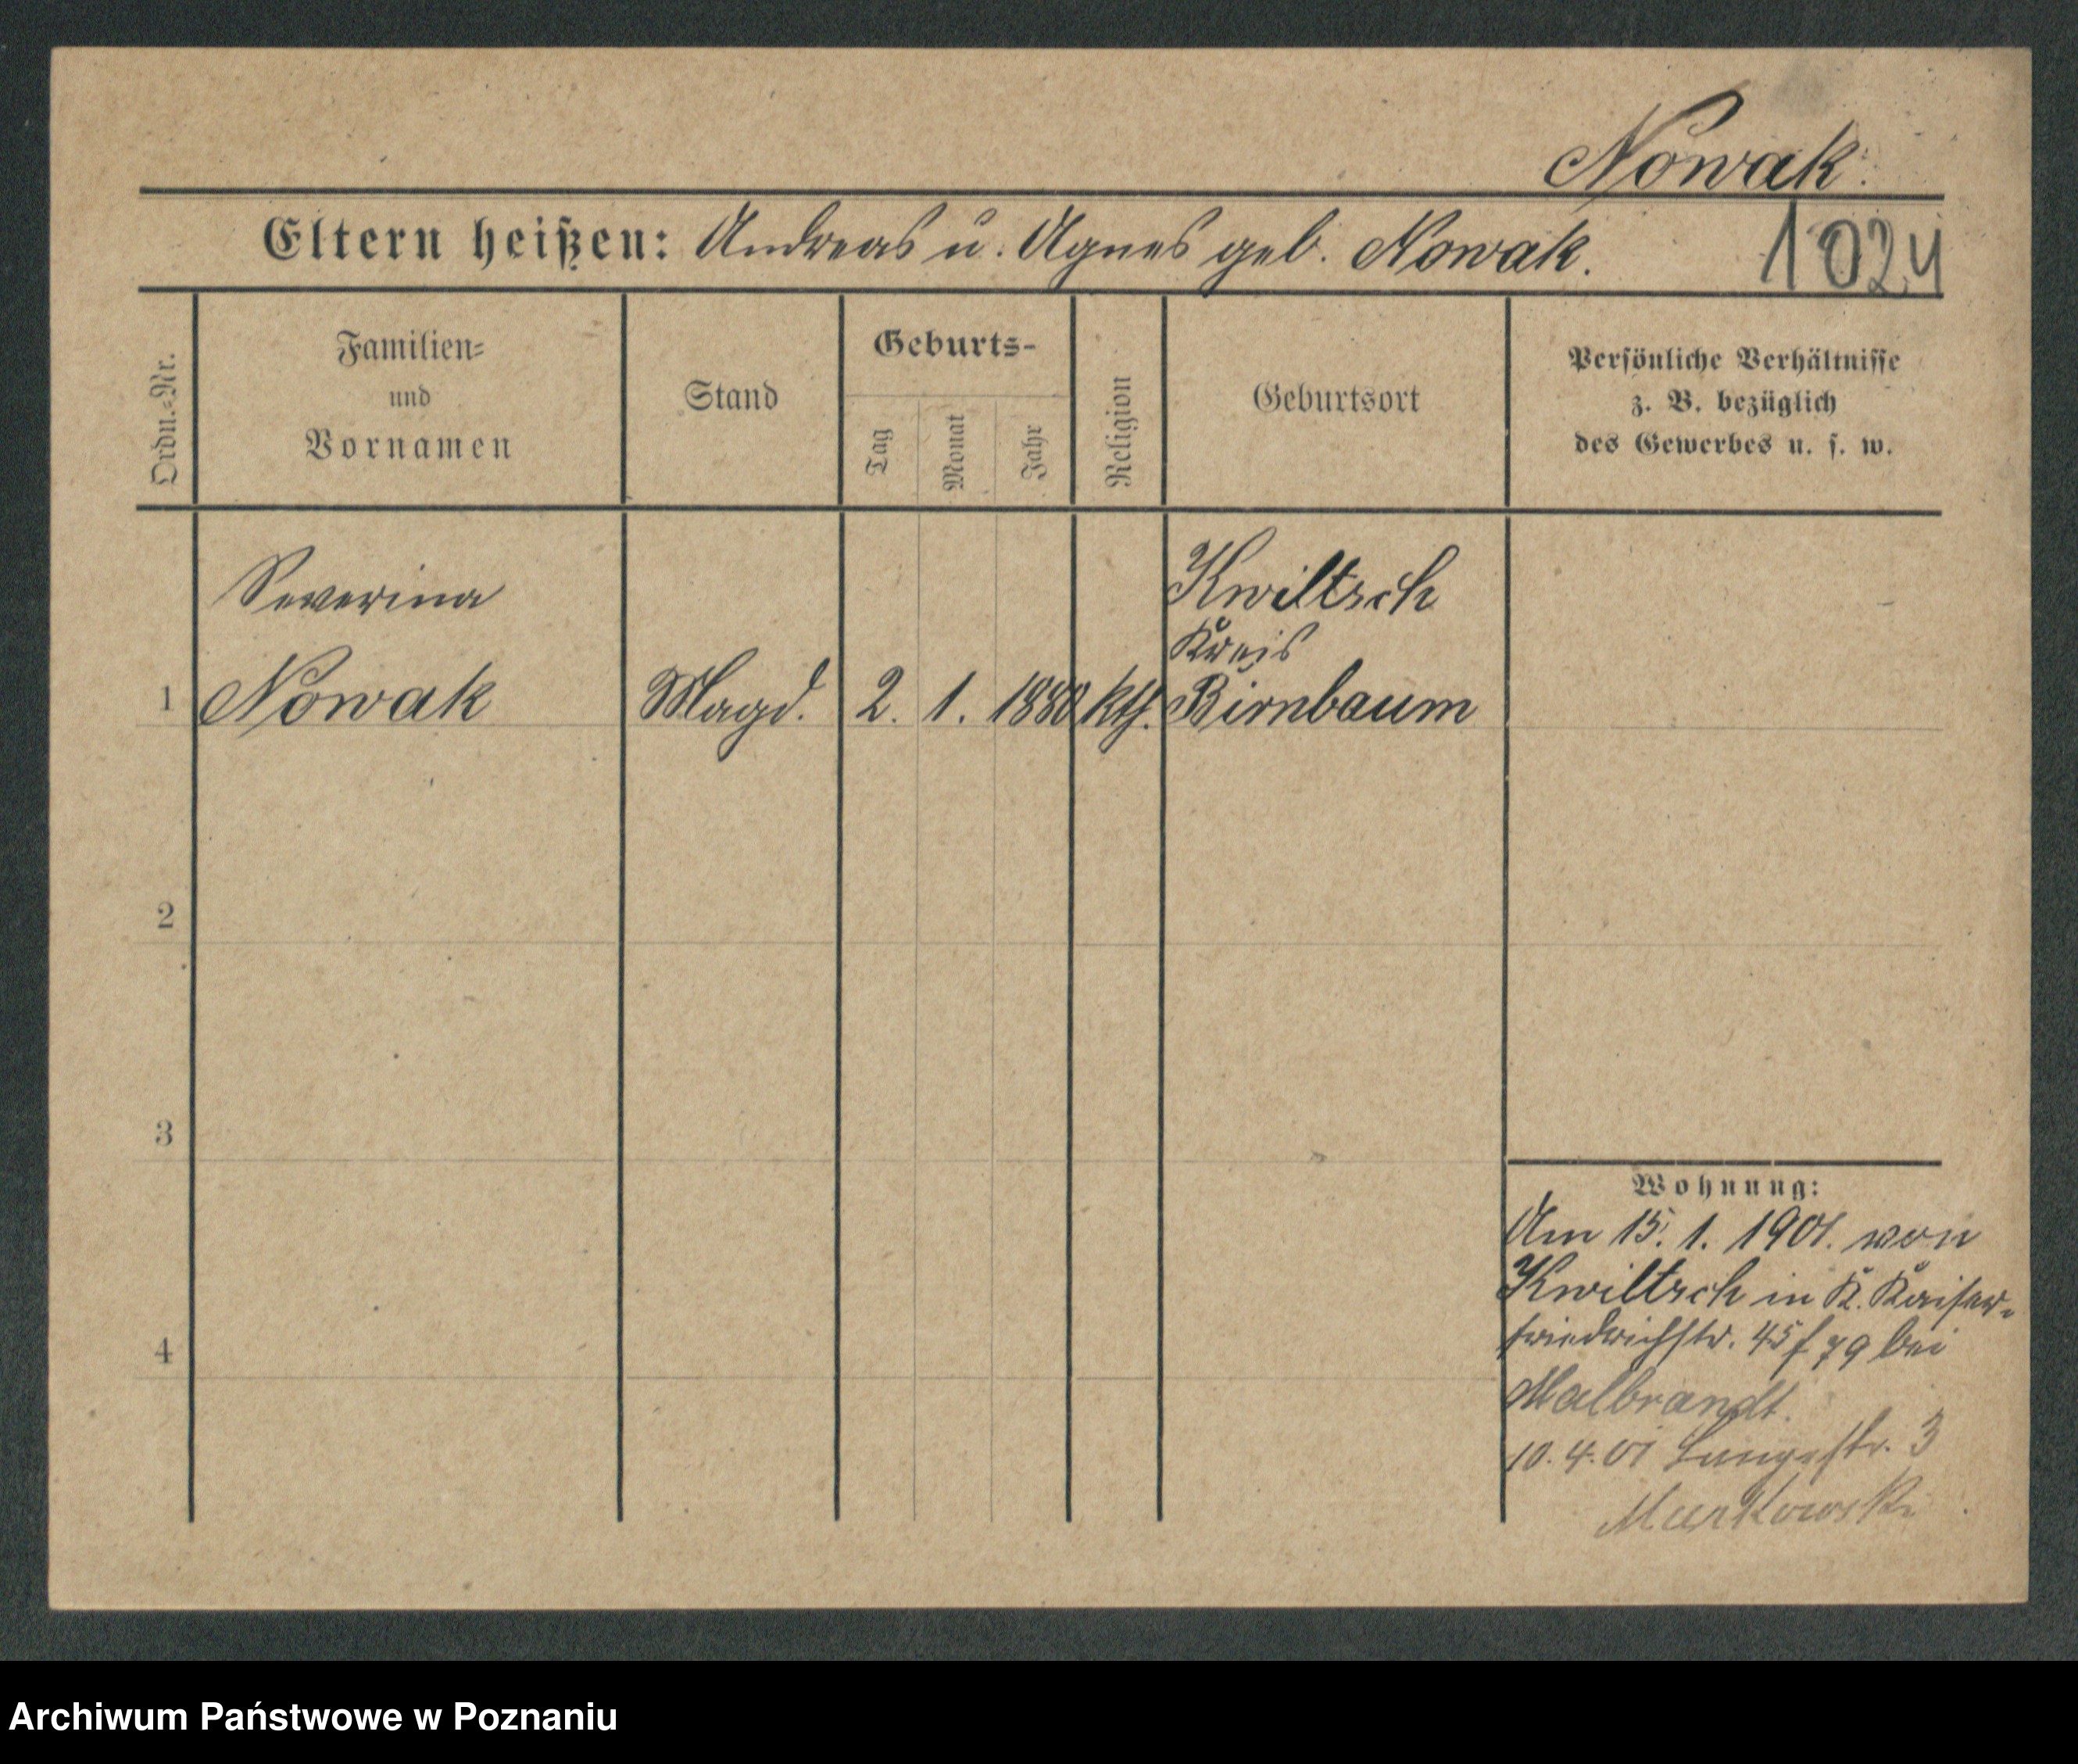 Nowak.
Eltern heißen: Andreas u. Agnes geb. Nowak.
1024
Ordn.-Nr.
Familien-
und
Vornamen
Stand
Geburts-
Tag
Monat
Jahr
Religion
Geburtsort
Persönliche Verhältnisse
z. B. bezüglich
des Gewerbes u. s. w.
Severina
Kwiltsch
Kreis
1 Nowak Magd. 2. 1. 1880 kth. Birnbaum
2
3
4
Wohnung:
Am 15. 1. 1901. von
Kwiltsch in K. Kaiser-
friedrichstr. 45 f 79 bei
Malbrandt.
10. 4. 01 Langestr. 3
Murkowski
Archiwum Państwowe w Poznaniu